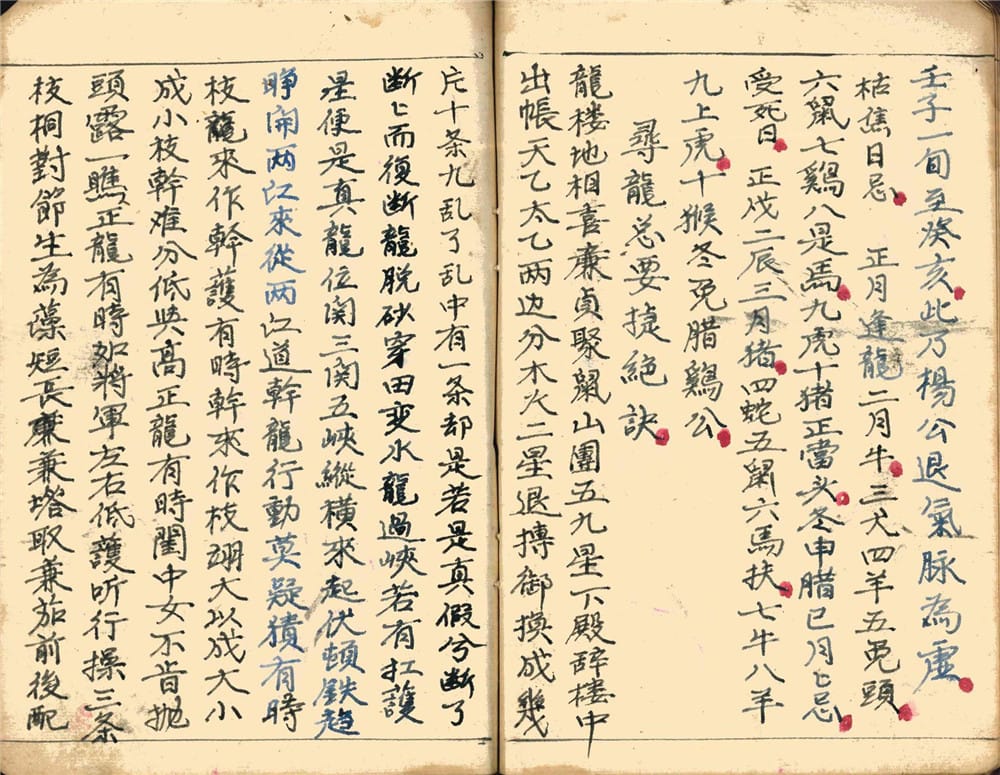 壬子一旬至癸亥此乃楊公退氣脉為虛
枯焦日忌 正月逢龍二月牛三犬四羊五兎頭
六鼠七鷄八是馬九虎十猪正當头冬申腊巳月上忌
受死日 正戌二辰三月猪四蛇五鼠六馬扶七牛八羊
九上虎十猴冬兎腊鷄公
尋龍总要捷絶訣
龍楼地相喜亷貞聚翼山團五九星下殿辞楼中
出帳天乙太乙两边分木火二星退摶御換成幾
片十条九乱了乱中有一条却是若是真假兮断了
断匕而復断龍脱砂穿田变水龍過峽若有扛護
星便是真龍位関三関五峽縱横來起伏頓鉄趋
睁開两江來從两江道幹龍行動莫疑猜有時
枝龍來作幹護有時幹來作枝翊大以成大小
成小枝幹难分低與高正龍有時閨中女不肯抛
頭露一瞧正龍有時如將軍左右低護听行操三条
枝桐對節生為藻短長亷兼塔取兼茄前後配